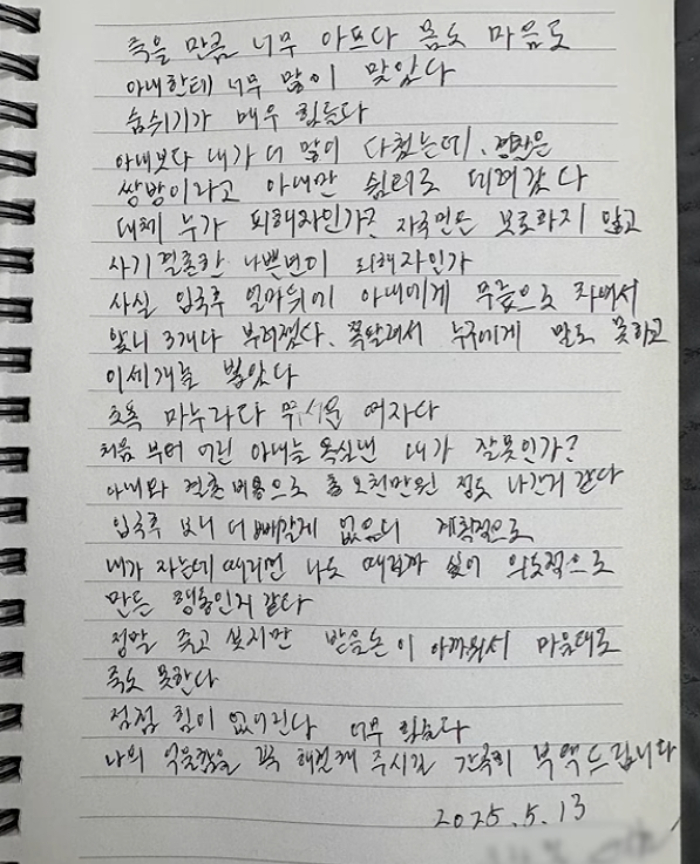 죽을 만큼 너무 아프다 몸도 마음도
아내한테 너무 많이 맞았다
숨쉬기가 매우 힘들다
아내보다 내가 더 많이 다쳤는데, 경찰은
쌍방이라고 아내만 쉼터로 데려갔다
대체 누가 피해자인가? 자국민은 보호하지 않고
사기결혼한 나쁜년이 피해자인가
사실 입국후 얼마뒤에 아내에게 무릎으로 차여서
앞니 3개나 부러졌다. 쪽팔려서 누구에게 말도 못하고
이세개를 뽑았다
초혹 마누라다 무서운 여자다
처음 부터 어린 아내를 욕심낸 내가 잘못인가?
아내와 결혼비용으로 총 오천만원 정도 나간거 같다
입국후 보니 더 빼갈게 없으니 계획적으로
내가 자는데 때리면 나도 때릴까 싶어 의도적으로
만든 행동인거 같다
정말 죽고 싶지만 받을돈이 아까워서 마음대로
죽도 못한다
점점 힘이 없어진다 너무 힘들다
나의 억울함을 꼭 해결해 주시길 간곡히 부탁드립니다
2025.5.13